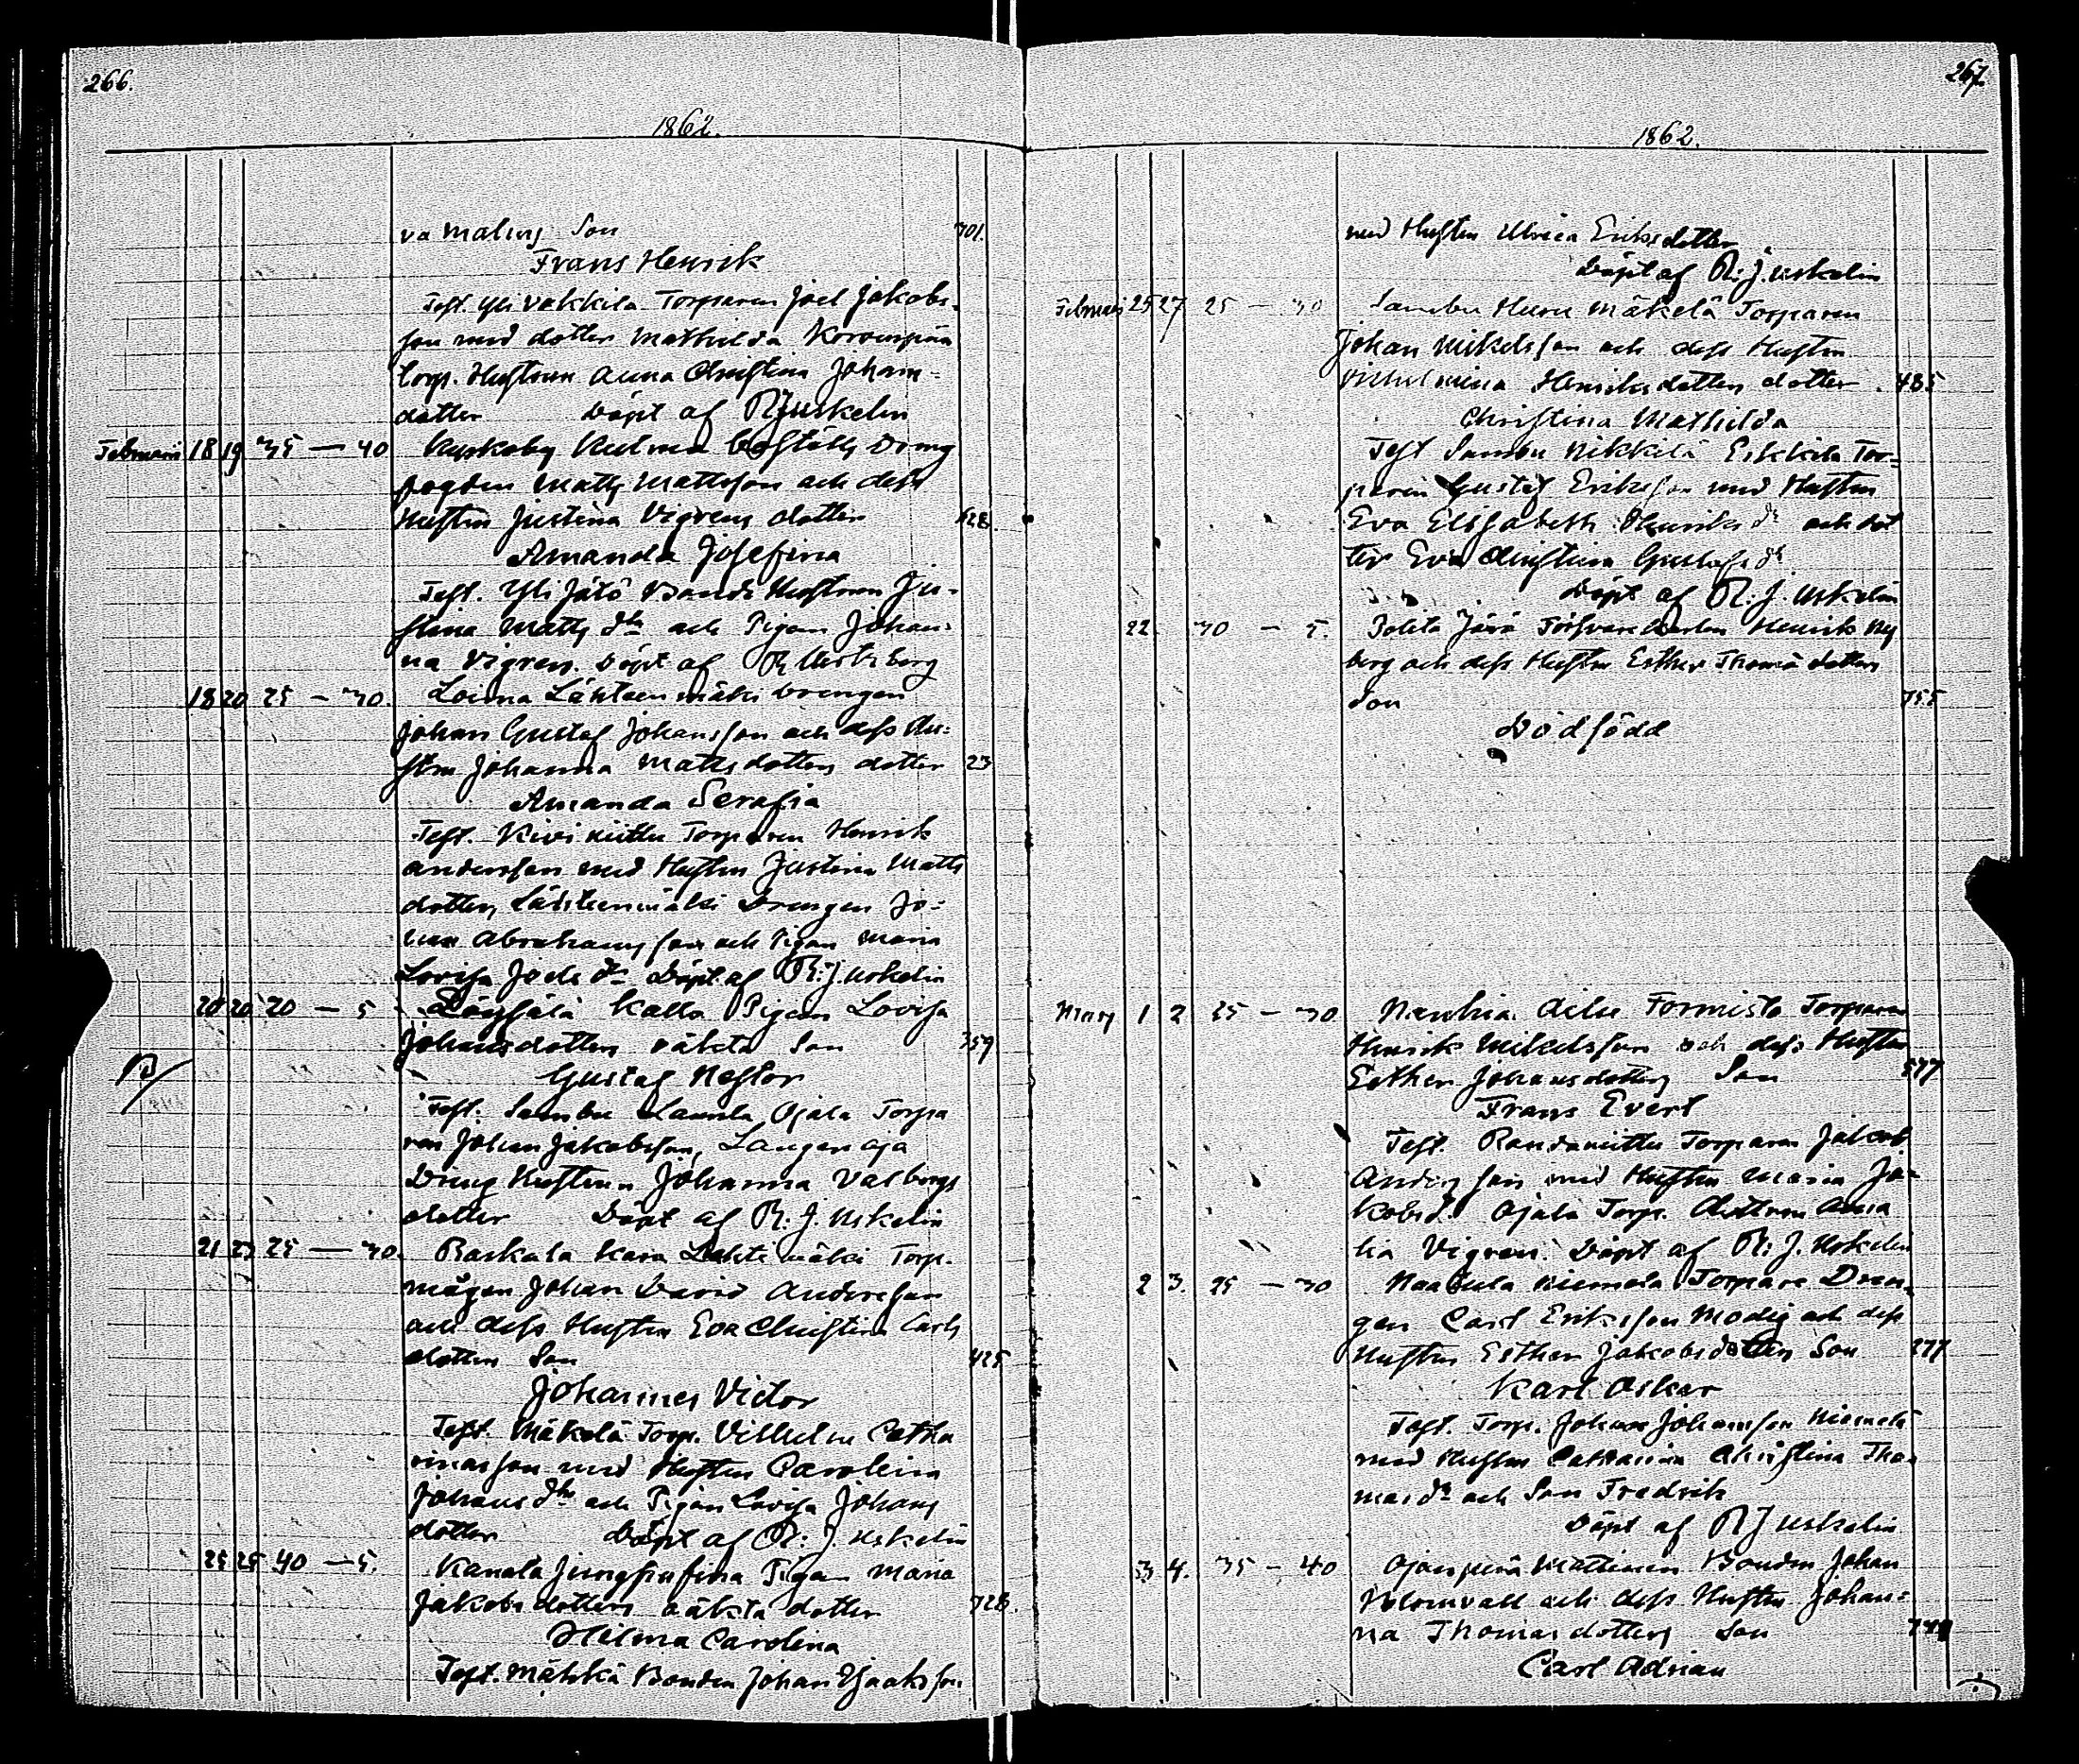 266.
1862.
va Malins Son 301.
Frans Henrik
Test. Yli Vakkila Torparen Joel Jakobs-
son med dotter Mathilda Korvenpää
torp. Hustrun Anna Christina Johans=
dotter Döpt af R J Uskelin
Februarii 18 19 35 — 40 Kuskoby Kulma Boställs Dreng
fogden Matts Mattsson och dess
Hustru Justina Vigrens dotter 528.
Amanda Josefina
Test. Yli Jätö Bonde Hustrun Ju-
stina Matts dtr och Pigan Johan-
na Vigren. Döpt af
18 20 25 — 30. Loima Lähteenmäki Drengen
Johan Gustaf Johansson och dess Hu=
stru Johanna Mattsdotters dotter 23
Amanda Serafia
Test. Kivi niittu Torparen Henrik
Andersson med Hustru Justina Matts
dotter, Lähteenmäki Drengen Jo=
han Abrahamsson och Pigan Maria
Lovisa Joels dr Döpt af R: J. Uskelin
20 20 20 — 5 Kalla Pigan Lovisa
Johansdotters oäkta Son 359
Gustaf Nestor
Test. Sambu Laurila Ojala Torpa
ren Johan Jakobsson, Langenoja
Dreng Hustrun Johanna Valborgs
dotter Döpt af R: J. Uskelin
21 23 25 — 30. Raskala Kara Lähtemäki Torp.
mågen Johan David Andersson
och dess Hustru Eva Christina Carls
dotters Son 425
Johannes Victor
Test. Mäkelä Torp. Vilhelm Catha
rinasson med Hustru Carolina
Johans dtr och Pigan Lovisa Johans
dotter Döpt af R: J. Uskelin
25 25 40 — 5. Kanala Pigan Maria
Jakobsdotters oäkta dotter 328.
Hilma Carolina
Test. Mähkä Bonden Johan Isaksson
267.
1862.
med Hustru Ulrica Eriksdotter
Döpt af R: J. Uskelin
Februarii 25 27 25 — 30 Sambu Huru Mäkelä Torparen
Johan Mikelsson och dess Hustru
Vilhelmina Henriksdotters dotter. 485
Christina Mathilda
Test Sambu Nikkilä Eskkila Tor=
paren Gustaf Eriksson med Hustru
Eva Elisabeth Henriks dr och dot
ter Eva Christina Gustafs dr
Döpt af R: J. Uskelin
22. 30 — 5. Jävä Henrik Ny
berg och dess Hustru Esther Thomä dotters
Son 355
Dödfödd
Mars 1 2 25 — 30 Torparen
Henrik Mikelsson och dess Hustru
Esther Johansdotters Son 577
Frans Evert
Test. Randaniittu Torparen Jakob
Andersson med Hustru Maria Ja-
kobsd. Ojala Torp. Hustrun Ama
lia Vigren. Döpt af R: J. Uskelin
2 3. 25 — 30 Niemelä Torpare Dren-
gen Carl Eriksson Modig och dess
Hustru Esther Jakobsdotters Son 277
Karl Oskar
Test. Torp. Johan Johansson Niemelä
med Hustru Catharina Christina Tho-
mas dr och Son Fredrik
Döpt af R J Uskelin
3 4. 35 — 40 Ojanperä Mattinen Bonden Johan
Blomvall och dess Hustru Johan=
na Thomasdotters Son
Carl Adrian